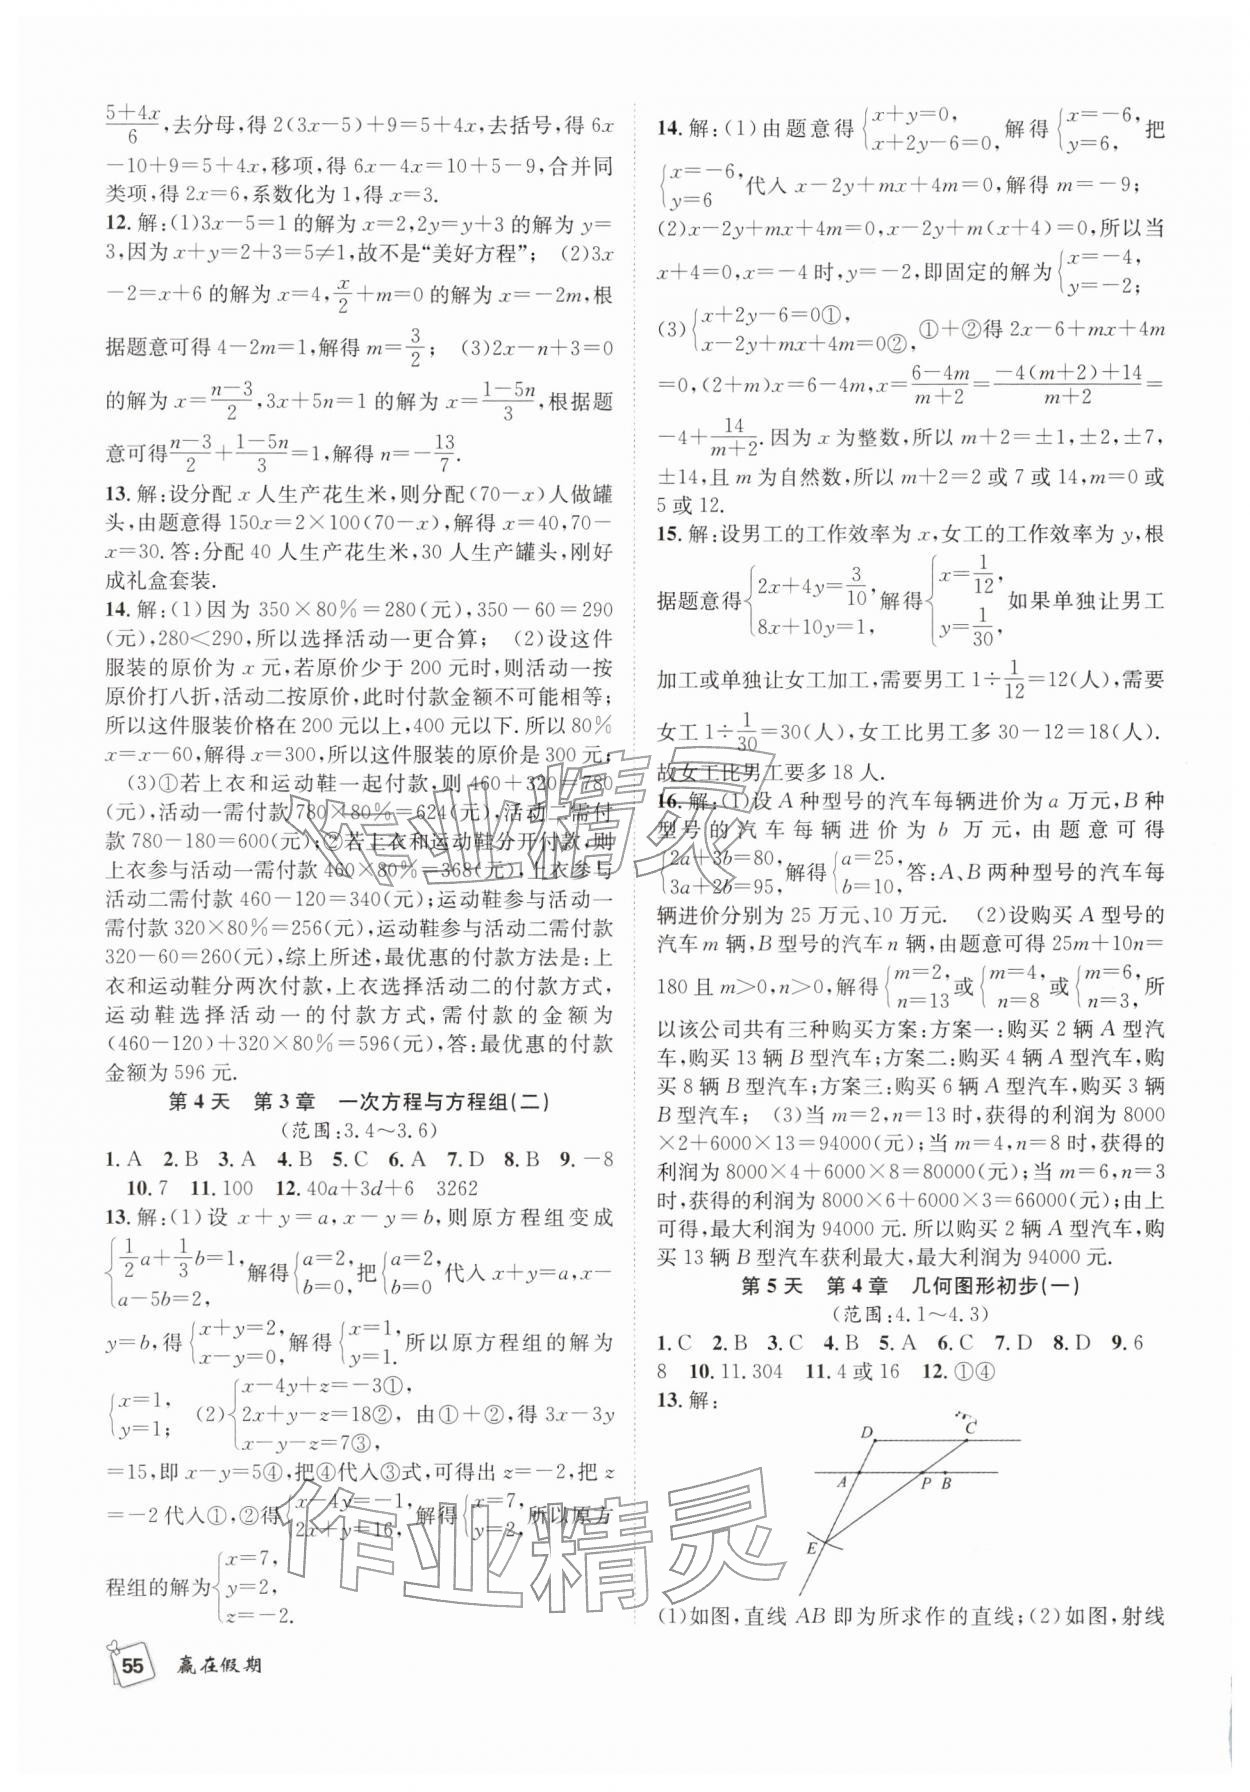 5+4x/6,去分母,得 2(3x-5)+9=5+4x,去括号,得 6x
-10+9=5+4x,移项,得 6x-4x=10+5-9,合并同
类项,得 2x=6,系数化为 1,得 x=3.
12.解:(1)3x-5=1 的解为 x=2,2y=y+3 的解为 y=
3,因为 x+y=2+3=5≠1,故不是“美好方程”; (2)3x
-2=x+6 的解为 x=4,x/2+m=0 的解为 x=-2m,根
据题意可得 4-2m=1,解得 m=3/2; (3)2x-n+3=0
的解为 x=(n-3)/2,3x+5n=1 的解为 x=(1-5n)/3,根据题
意可得(n-3)/2+(1-5n)/3=1,解得 n=-13/7.
13.解:设分配 x 人生产花生米,则分配(70-x)人做罐
头,由题意得 150x=2×100(70-x),解得 x=40,70-
x=30.答:分配 40 人生产花生米,30 人生产罐头,刚好
成礼盒套装.
14.解:(1)因为 350×80%=280(元),350-60=290
(元),280<290,所以选择活动一更合算; (2)设这件
服装的原价为 x 元,若原价少于 200 元时,则活动一按
原价打八折,活动二按原价,此时付款金额不可能相等;
所以这件服装价格在 200 元以上,400 元以下.所以 80%
x=x-60,解得 x=300,所以这件服装的原价是 300 元;
(3)①若上衣和运动鞋一起付款,则 460+320=780
(元),活动一需付款 780×80%=624(元),活动二需付
款 780-180=600(元);②若上衣和运动鞋分开付款,则
上衣参与活动一需付款 460×80%=368(元),上衣参与
活动二需付款 460-120=340(元);运动鞋参与活动一
需付款 320×80%=256(元),运动鞋参与活动二需付款
320-60=260(元),综上所述,最优惠的付款方法是:上
衣和运动鞋分两次付款,上衣选择活动二的付款方式,
运动鞋选择活动一的付款方式,需付款的金额为
(460-120)+320×80%=596(元),答:最优惠的付款
金额为 596 元.
第 4 天 第 3 章 一次方程与方程组(二)
(范围:3.4～3.6)
1.A 2.B 3.A 4.B 5.C 6.A 7.D 8.B 9.-8
10.7 11.100 12.40a+3d+6 3262
13.解:(1)设 x+y=a,x-y=b,则原方程组变成
{1/2a+1/3b=1, a-5b=2, 解得{a=2, b=0, 把{a=2, b=0 代入 x+y=a,x-
y=b,得{x+y=2, x-y=0, 解得{x=1, y=1. 所以原方程组的解为
{x=1, y=1; (2){x-4y+z=-3①, 2x+y-z=18②, x-y-z=7③, 由①+②,得 3x-3y
=15,即 x-y=5④,把④代入③式,可得出 z=-2,把 z
=-2代入①,②得{x-4y=-1, 2x+y=16, 解得{x=7, y=2, 所以原方
程组的解为{x=7, y=2, z=-2.
55 赢在假期
14.解:(1)由题意得{x+y=0, x+2y-6=0, 解得{x=-6, y=6, 把
{x=-6, y=6 代入 x-2y+mx+4m=0,解得 m=-9;
(2)x-2y+mx+4m=0,x-2y+m(x+4)=0,所以当
x+4=0,x=-4 时,y=-2,即固定的解为{x=-4, y=-2;
(3){x+2y-6=0①, x-2y+mx+4m=0②, ①+②得 2x-6+mx+4m
=0,(2+m)x=6-4m,x=(6-4m)/(m+2)=(-4(m+2)+14)/(m+2)=
-4+14/(m+2).因为 x 为整数,所以 m+2=±1,±2,±7,
±14,且 m 为自然数,所以 m+2=2 或 7 或 14,m=0 或
5 或 12.
15.解:设男工的工作效率为 x,女工的工作效率为 y,根
据题意得{2x+4y=3/10, 8x+10y=1, 解得{x=1/12, y=1/30, 如果单独让男工
加工或单独让女工加工,需要男工 1÷1/12=12(人),需要
女工 1÷1/30=30(人),女工比男工多 30-12=18(人).
故女工比男工要多 18 人.
16.解:(1)设 A 种型号的汽车每辆进价为 a 万元,B 种
型号的汽车每辆进价为 b 万元,由题意可得
{2a+3b=80, 3a+2b=95, 解得{a=25, b=10, 答:A、B 两种型号的汽车每
辆进价分别为 25 万元、10 万元. (2)设购买 A 型号的
汽车 m 辆,B 型号的汽车 n 辆,由题意可得 25m+10n=
180 且 m>0,n>0,解得{m=2, n=13 或{m=4, n=8 或{m=6, n=3, 所
以该公司共有三种购买方案:方案一:购买 2 辆 A 型汽
车,购买 13 辆 B 型汽车;方案二:购买 4 辆 A 型汽车,购
买 8 辆 B 型汽车;方案三:购买 6 辆 A 型汽车,购买 3 辆
B 型汽车; (3)当 m=2,n=13 时,获得的利润为 8000
×2+6000×13=94000(元);当 m=4,n=8 时,获得的
利润为 8000×4+6000×8=80000(元);当 m=6,n=3
时,获得的利润为 8000×6+6000×3=66000(元);由上
可得,最大利润为 94000 元.所以购买 2 辆 A 型汽车,购
买 13 辆 B 型汽车获利最大,最大利润为 94000 元.
第 5 天 第 4 章 几何图形初步(一)
(范围:4.1～4.3)
1.C 2.B 3.C 4.B 5.A 6.C 7.D 8.D 9.6
8 10.11.304 11.4 或 16 12.①④
13.解:
D C
A P B
E
(1)如图,直线 AB 即为所求作的直线;(2)如图,射线
作业精灵
作业精灵